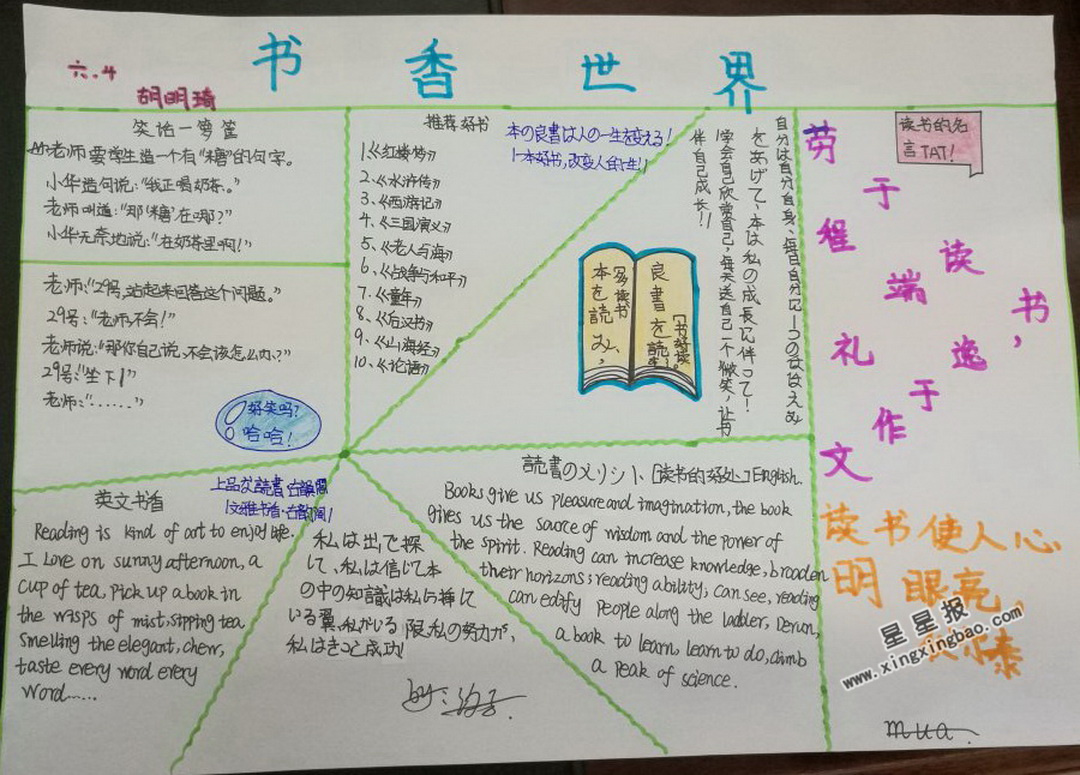 书香世界
六.4
胡明琦
笑话一箩筐
老师要学生造一个有“糖”的句字。
小华造句说:“我正喝奶茶。”
老师叫道:“那‘糖’在哪?”
小华无奈地说:“在奶茶里啊!”
老师:“29号,站起来回答这个问题。”
29号:“老师,不会!”
老师说:“那你自己说,不会该怎么办?”
29号:“坐下!”
老师:“......”
好笑吗?
哈哈!
推荐好书
1.《红楼梦》
2.《水浒传》
3.《西游记》
4.《三国演义》
5.《老人与海》
6.《战争与和平》
7.《童年》
8.《后汉书》
9.《山海经》
10.《论语》
本の良書は人の一生を変える!
一本好书,改变人的一生!
自分は自分自身、毎日自分に1つのほほえみ
をあげて、本は私の成長に伴って!
学会自己欣赏自己,每天送自己一个微笑,让书
伴自己成长!
良書を読
[书好读
本を読み,
多读书
读书的名
言TAT!
劳于读书,
程端礼
逸于作文
读书使人心
明眼亮,
泰
mua.
英文书香
Reading is kind of art to enjoy life.
I Love on sunny afternoon, a
cup of tea, Pick up a book in
the wisps of mist, sipping tea
smelling the elegant, chew,
taste every word every
word......
上品な読書·台韻閣
文雅书香·台韵阁
私は出で採
して、私は信じて本
の中の知識は私に捧に
いる翼,私がいる限,私の努力が,
私はきっと成功!
読書のメリット[读书的好处]English.
Books give us pleasure and imagination, the book
gives us the saurce of wisdom and the power of
the spirit. Reading can increase knowledge, broaden
their horizons; reading ability, can see, reading
can edify people along the ladder, Derun,
a book to learn, learn to do, climb
a peak of science.
星星报
www.xingxingbao.com